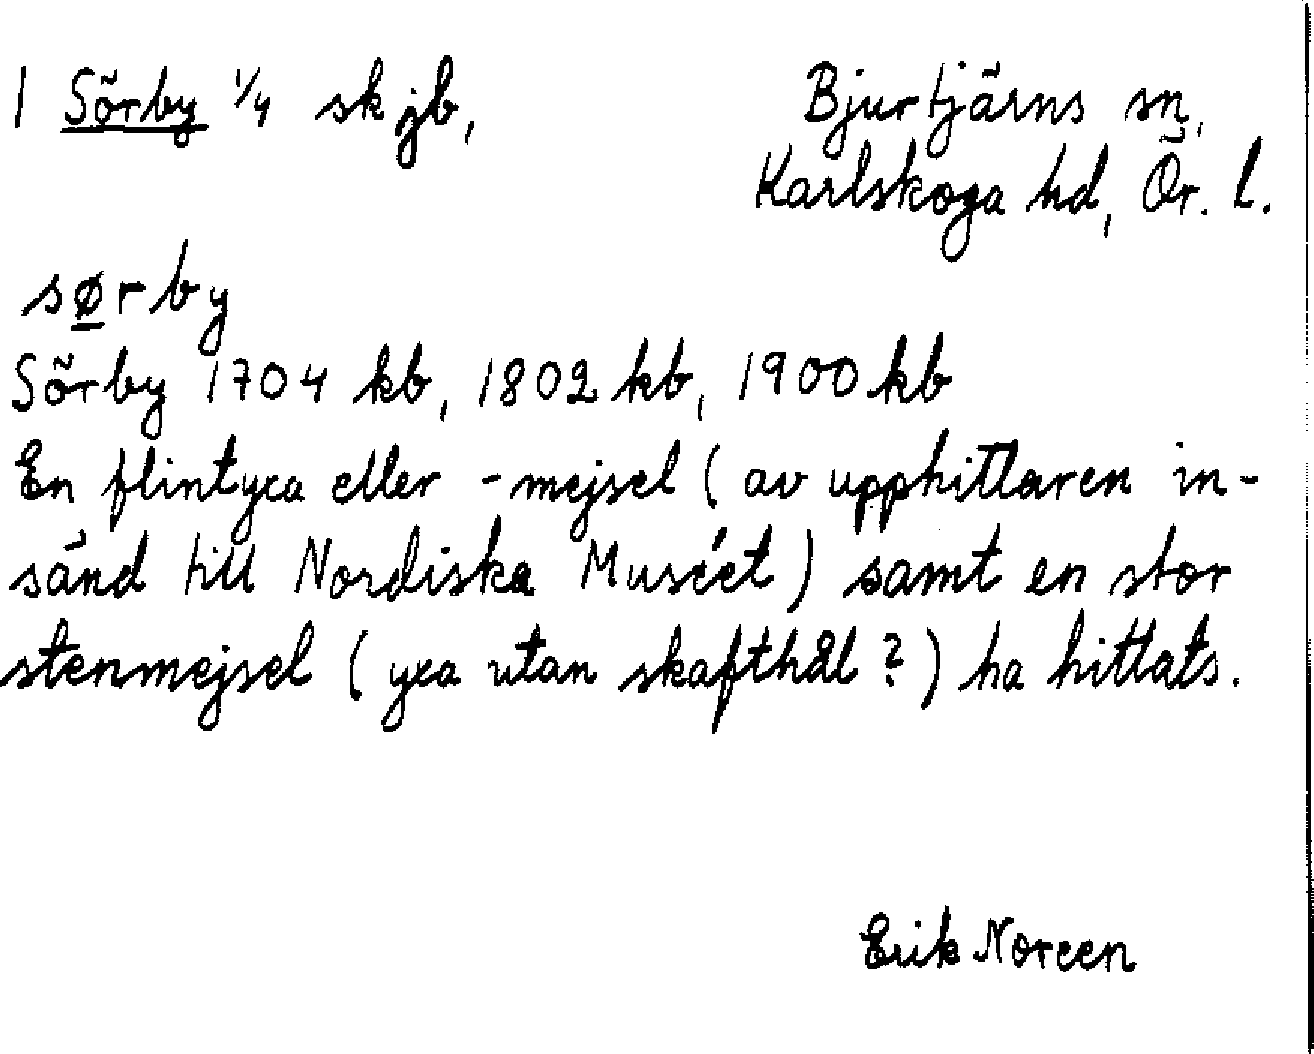 1 Sörby 1/4 sk jb, Bjurtjärns sn,
Karlskoga hd, Ör. l.
sørby
Sörby 1704 kb, 1802 kb, 1900 kb
En flintyxa eller -mejsel (av upphittaren in-
sänd till Nordiska Muséet) samt en stor
stenmejsel (yxa utan skafthål?) ha hittats.
Erik Noreen